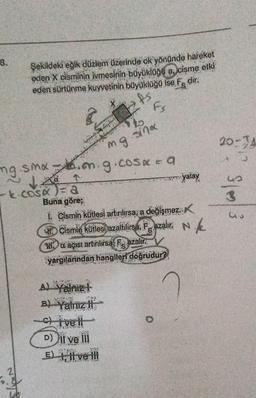 8.
Şekildeki eğik düzlem üzerinde ok yönünde hareket
eden X cisminin ivmesinin büyüklüğü a, cisme etki
eden sürtünme kuvvetinin büyüklüğü ise Fs dir.
X
Fs
mg sinα
20-
mg.sinα - k.m.g.cosα = a
yatay
- k cosα) = a
Buna göre;
I. Cismin kütlesi artırılırsa, a değişmez.
II. Cismin kütlesi azaltılırsa, Fs azalır. N.k
III. α açısı artırılırsa, Fs azalır.
yargılarından hangileri doğrudur?
A) Yalnız I
B) Yalnız II
C) I ve II
D) II ve III
E) I, II ve III